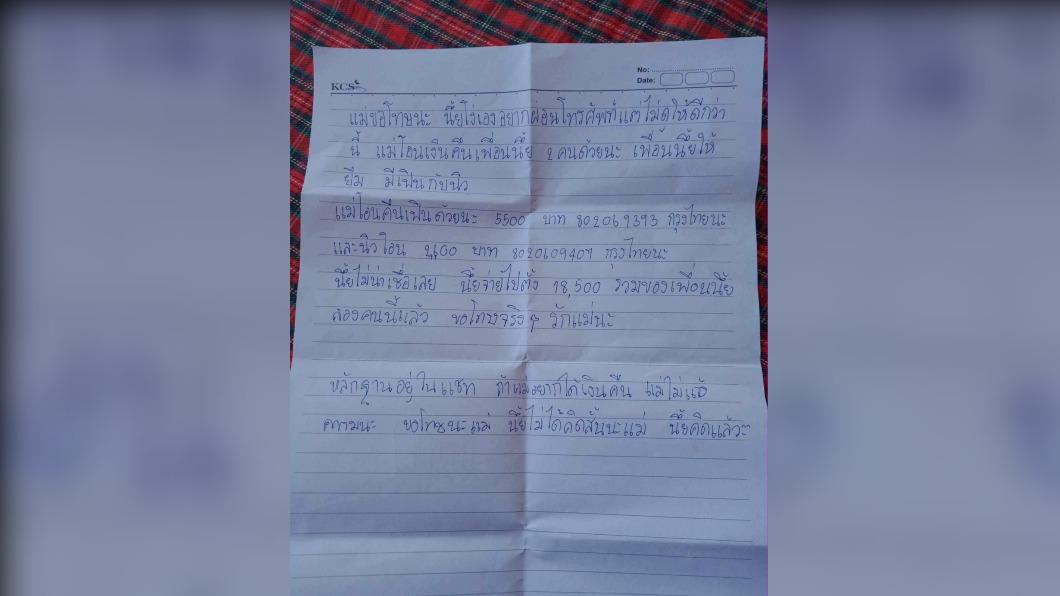 KCS
No:
Date:
แม่ขอโทษนะ นิ้ยโง่เองอยากผ่อนโทรศัพท์แต่ไม่ดูให้ดีกว่า
นี้ แม่โอนเงินคืนเพื่อนนิ้ย 2 คนด้วยนะ เพื่อนนิ้ยให้
ยืม มีเฟินกับนิว
แม่โอนคืนเฟินด้วยนะ 5500 บาท 802069393 กรุงไทยนะ
และนิวโอน บาท กรุงไทยนะ
นิ้ยไม่น่าเชื่อเลย นิ้ยจ่ายไปตั้ง 18,500 รวมของเพื่อนนิ้ย
สองคนนี้แล้ว ขอโทษจริงๆ รักแม่นะ
หลักฐานอยู่ในแชท ถ้าแม่อยากได้เงินคืน แม่ไปแจ้
ความนะ ขอโทษนะแม่ นิ้ยไม่ได้คิดสั้นนะแม่ นิ้ยคิดแล้ว